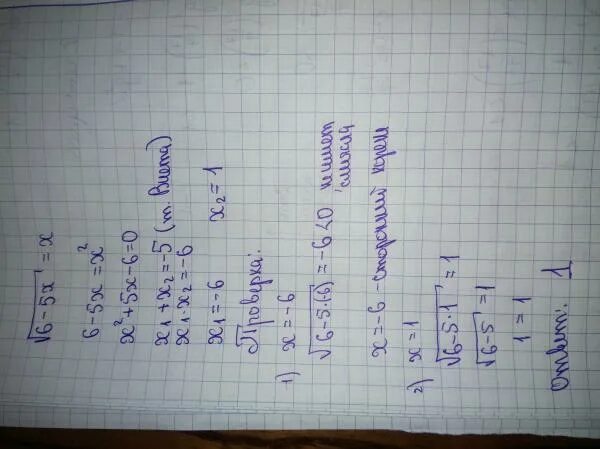 √6-5x = x
6-5x=x²
x²+5x-6=0
x₁+x₂=-5 (т. Виета)
x₁·x₂=-6
x₁=-6 x₂=1
Проверка:
1) x=-6
√6-5·(-6) = -6<0 не имеет смысла
x=-6 -сторонний корень
2) x=1
√6-5·1 = 1
√6-5 =1
1=1
Ответ: 1